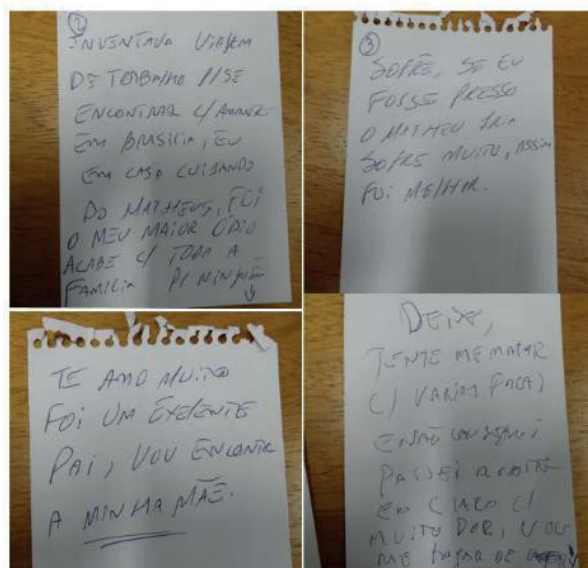 2
INVENTAVA VIAGEM
DE TRABALHO P/ SE
ENCONTRAR C/ AMANTE
EM BRASILIA, EU
EM CASA CUIDANDO
DO MATHEUS, FOI
O MEU MAIOR ÓDIO
ACABE C/ TODA A
FAMILIA P/ NINGUÉM
3
SOFRÊ, SE EU
FOSSE PRESSO
O MATHEU IRIA
SOFRE MUITO, ASSIM
FOI MELHOR.
TE AMO MUITO
FOI UM EXELENTE
PAI, VOU ENCONTRA
A MINHA MÃE.
TENTE ME MATAR
C/ VARIAS FACAS
E NÃO CONSEGUI
PASSEI A NOITE
EM CLARO C/
MUITO DOR, VOU
ME